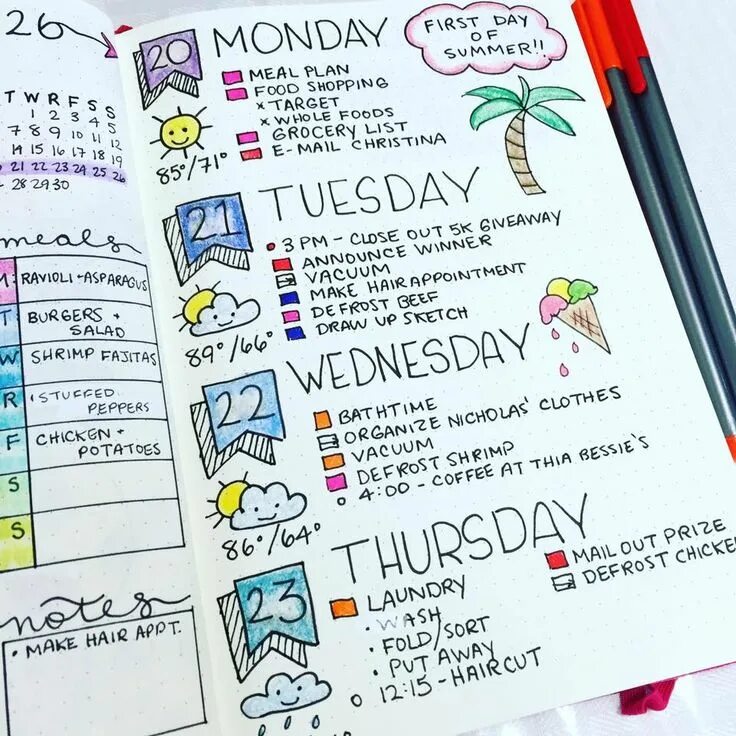 26
T W R F S S
1 2 3 4 5
7 8 9 10 11 12
14 15 16 17 18 19
21 22 23 24 25 26
28 29 30
meals
M: RAVIOLI + ASPARAGUS
T BURGERS +
SALAD
W SHRIMP FAJITAS
R STUFFED
PEPPERS
F CHICKEN +
POTATOES
S
S
notes
• MAKE HAIR APPT.
20 MONDAY
FIRST DAY
OF
SUMMER!!
MEAL PLAN
FOOD SHOPPING
x TARGET
x WHOLE FOODS
GROCERY LIST
E-MAIL CHRISTINA
85°/71°
21 TUESDAY
• 3 PM - CLOSE OUT 5K GIVEAWAY
ANNOUNCE WINNER
VACUUM
MAKE HAIR APPOINTMENT
DEFROST BEEF
DRAW UP SKETCH
89°/66°
22 WEDNESDAY
BATHTIME
ORGANIZE NICHOLAS' CLOTHES
VACUUM
DEFROST SHRIMP
○ 4:00 - COFFEE AT THIA BESSIE'S
86°/64°
23 THURSDAY
LAUNDRY
• WASH
• FOLD/SORT
• PUT AWAY
○ 12:15 - HAIRCUT
MAIL OUT PRIZE
DEFROST CHICKE